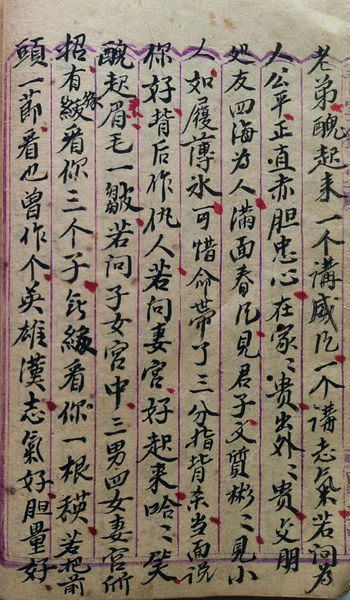 老弟醜起来一个講威风一个講志氣若詞为
人公平正直赤胆忠心在家〻贵出外〻贵交朋
处友四海为人滿面春风見君子文質彬〻見小
人如履薄氷可惜命帶了三分指背杀当面説
你好背后作仇人若问妻宫好起来哈〻笑
醜起眉毛一皺若问子女宫中三男四女妻宫所
招有缘看你三个子緣看你一根秧若把前
頭一節看也曾作个英雄漢志氣好胆量好